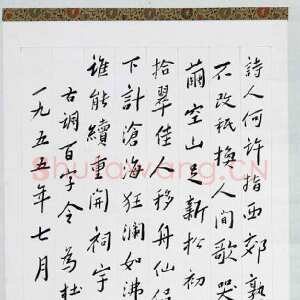 詩人何許指西郊
不改秖換人間歌哭
繭空山足新松初
拾翠佳人移舟仙侶
下計滄海狂瀾如沸
誰能續重開祠宇
古調百字令 為杜
一九五五年七月
Shufawang.CN